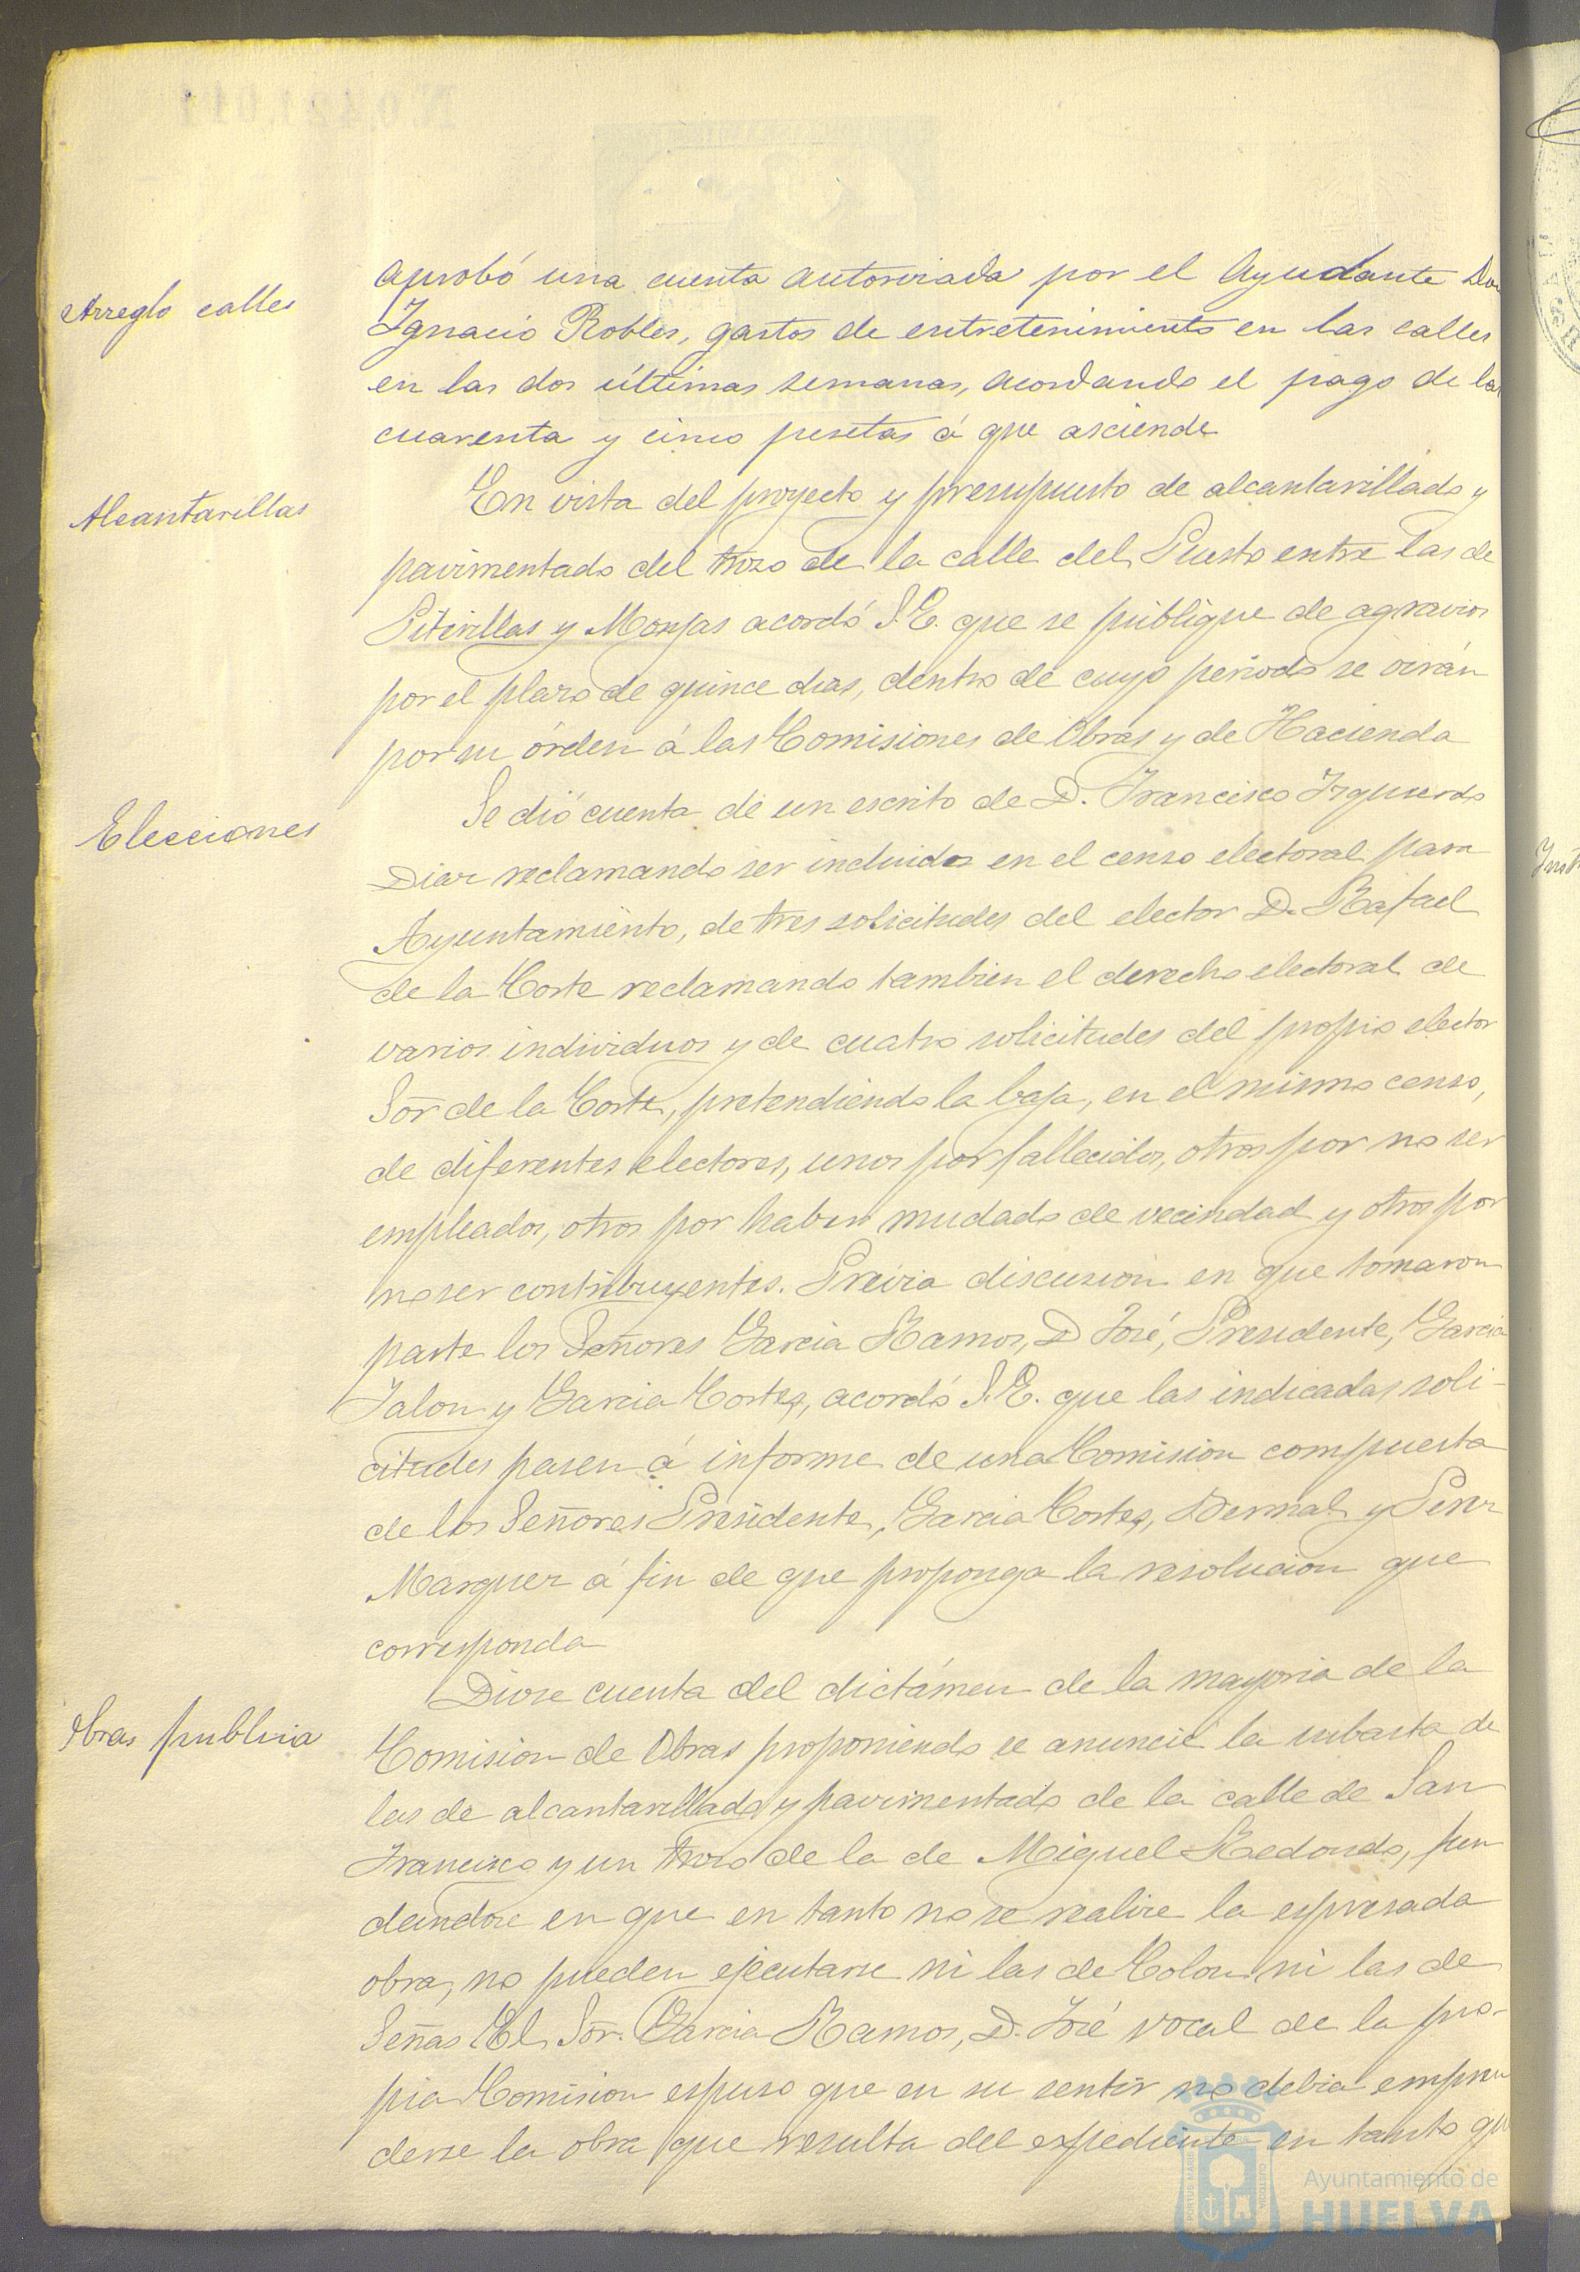 Arreglo calles
aprobó una cuenta autorizada por el Ayudante Don
Ygnacio Robles, gastos de entretenimiento en las calles
en las dos últimas semanas, acordando el pago de las
cuarenta y cinco pesetas á que asciende
Alcantarillas
En vista del proyecto y presupuesto de alcantarillado y
pavimentado del trozo de la calle del Puerto entre las de
Piterillas y Monjas acordó S.E. que se publique de agravios
por el plazo de quince dias, dentro de cuyo periodo se oirán
por su órden á las Comisiones de Obras y de Hacienda
Elecciones
Se dió cuenta de un escrito de D. Francisco Izquierdo
Diaz reclamando ser incluido en el censo electoral para
Ayuntamiento, de tres solicitudes del elector D. Rafael
de la Corte reclamando tambien el derecho electoral de
varios individuos y de cuatro solicitudes del propio elector
Sor̃ de la Corte, pretendiendo la baja, en el mismo censo,
de diferentes electores, unos por fallecidos, otros por no ser
empleados, otros por haber mudado de vecindad y otros por
no ser contribuyentes. Previa discusion en que tomaron
parte los Señores Garcia Ramos, D José, Presidente, Garcia
Jalon y Garcia Cortes, acordó S.E. que las indicadas soli-
citudes pasen á informe de una Comision compuesta
de los Señores Presidente, Garcia Cortes, Bermal y Perez
Marquez á fin de que proponga la resolucion que
corresponda
Obras publica
Diose cuenta del dictámen de la mayoria de la
Comision de Obras proponiendo se anuncie la subasta de
las de alcantarillado y pavimentado de la calle de San
Francisco y un trozo de la de Miguel Redondo, fun
dandose en que en tanto no se realice la espresada
obra, no pueden ejecutarse ni las de Colon ni las de
Señas El Sor̃. Garcia Ramos, D. José vocal de la pro-
pia Comision espuso que en su sentir no debia empren
derse la obra que resulta del expediente en tanto que
Ayuntamiento de
HUELVA